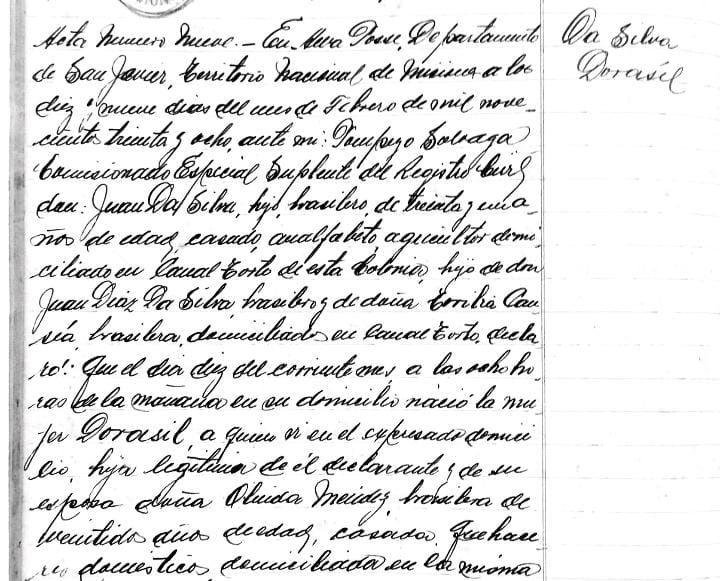 Acta Numero Nueve. - En Alva Posse, Departamento
de San Javier, Territorio Nacional de Misiones a los
diez y nueve dias del mes de Febrero de mil nove-
ciento treinta y ocho, ante mi: Pompeyo
Comisionado Especial Suplente del Registro Civil
don: Juan Da Silva, hijo, brasilero, de treinta y un a-
ños de edad, casado, analfabeto, agricultor domi-
ciliado en Canal Torto de esta Colonia, hijo de don
Juan Diaz Da Silva, brasilero y de doña
brasilera, domiciliados en Canal Torto, decla-
ro!: Que el dia diez del corriente mes a las ocho ho-
ras de la mañana en su domicilio nació la mu-
jer Dorasil, a quien vi en el expresado domici-
lio, hija legitima de él declarante y de su
esposa doña Olinda Mendez, brasilera de
veintidos años de edad, casada, Quehace-
res domésticos, domiciliada en la misma
Da Silva
Dorasil